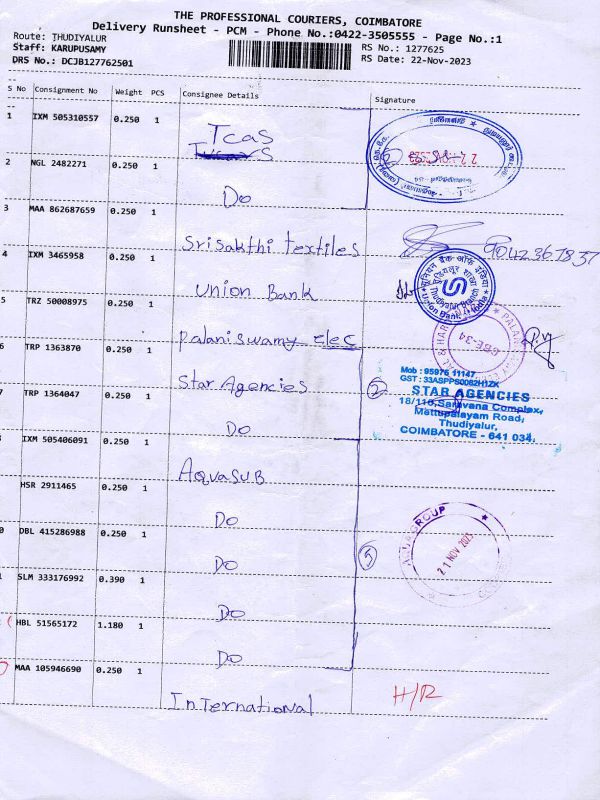 THE PROFESSIONAL COURIERS, COIMBATORE
Delivery Runsheet - PCM - Phone No.:0422-3505555 - Page No.:1
Route: THUDIYALUR
Staff: KARUPUSAMY
DRS No.: DCJB127762501
RS No.: 1277625
RS Date: 22-Nov-2023
S No Consignment No Weight PCS Consignee Details Signature
1 IXM 505310557 0.250 1 Tcas
2 NGL 2482271 0.250 1 Do
3 MAA 862687659 0.250 1 Srisakthi textiles
4 IXM 3465958 0.250 1 Union Bank
यूनियन बैंक ऑफ इंडिया
Thudiyalur Branch
Union Bank of India
5 TRZ 50008975 0.250 1 Palaniswamy Elec
CBE-34
6 TRP 1363870 0.250 1 Star Agencies
Mob : 95976 11147
GST : 33ASPPS0082H1ZK
STAR AGENCIES
18/116, Saravana Complex,
Mettupalayam Road,
Thudiyalur,
COIMBATORE - 641 034.
2
7 TRP 1364047 0.250 1 Do
IXM 505406091 0.250 1 AquaSUB
HSR 2911465 0.250 1 Do
0 DBL 415286988 0.250 1 Do
5
AQUA GROUP
21 NOV 2023
SLM 333176992 0.390 1 Do
HBL 51565172 1.180 1 Do
MAA 105946690 0.250 1 International
H/R